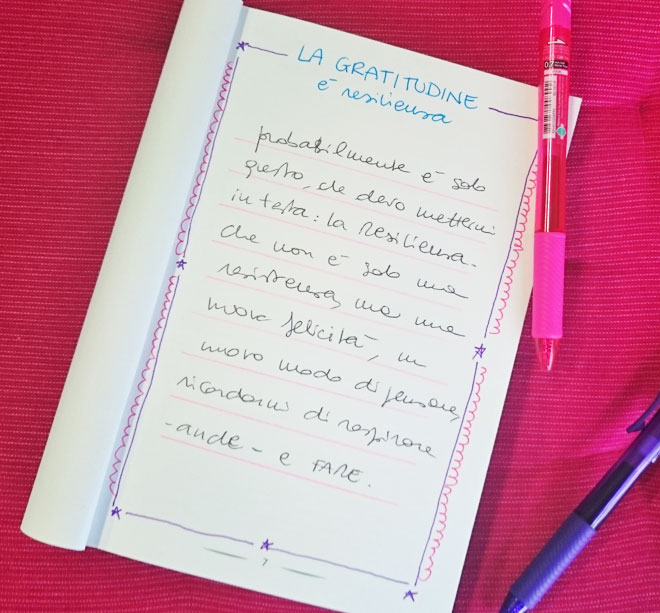 LA GRATITUDINE
è resilienza
probabilmente è solo
questo, che devo mettermi
in testa: la resilienza.
che non è solo una
resistenza, ma una
nuova felicità, un
nuovo modo di pensare,
ricordarmi di respirare
-anche- e FARE.
7
0.7